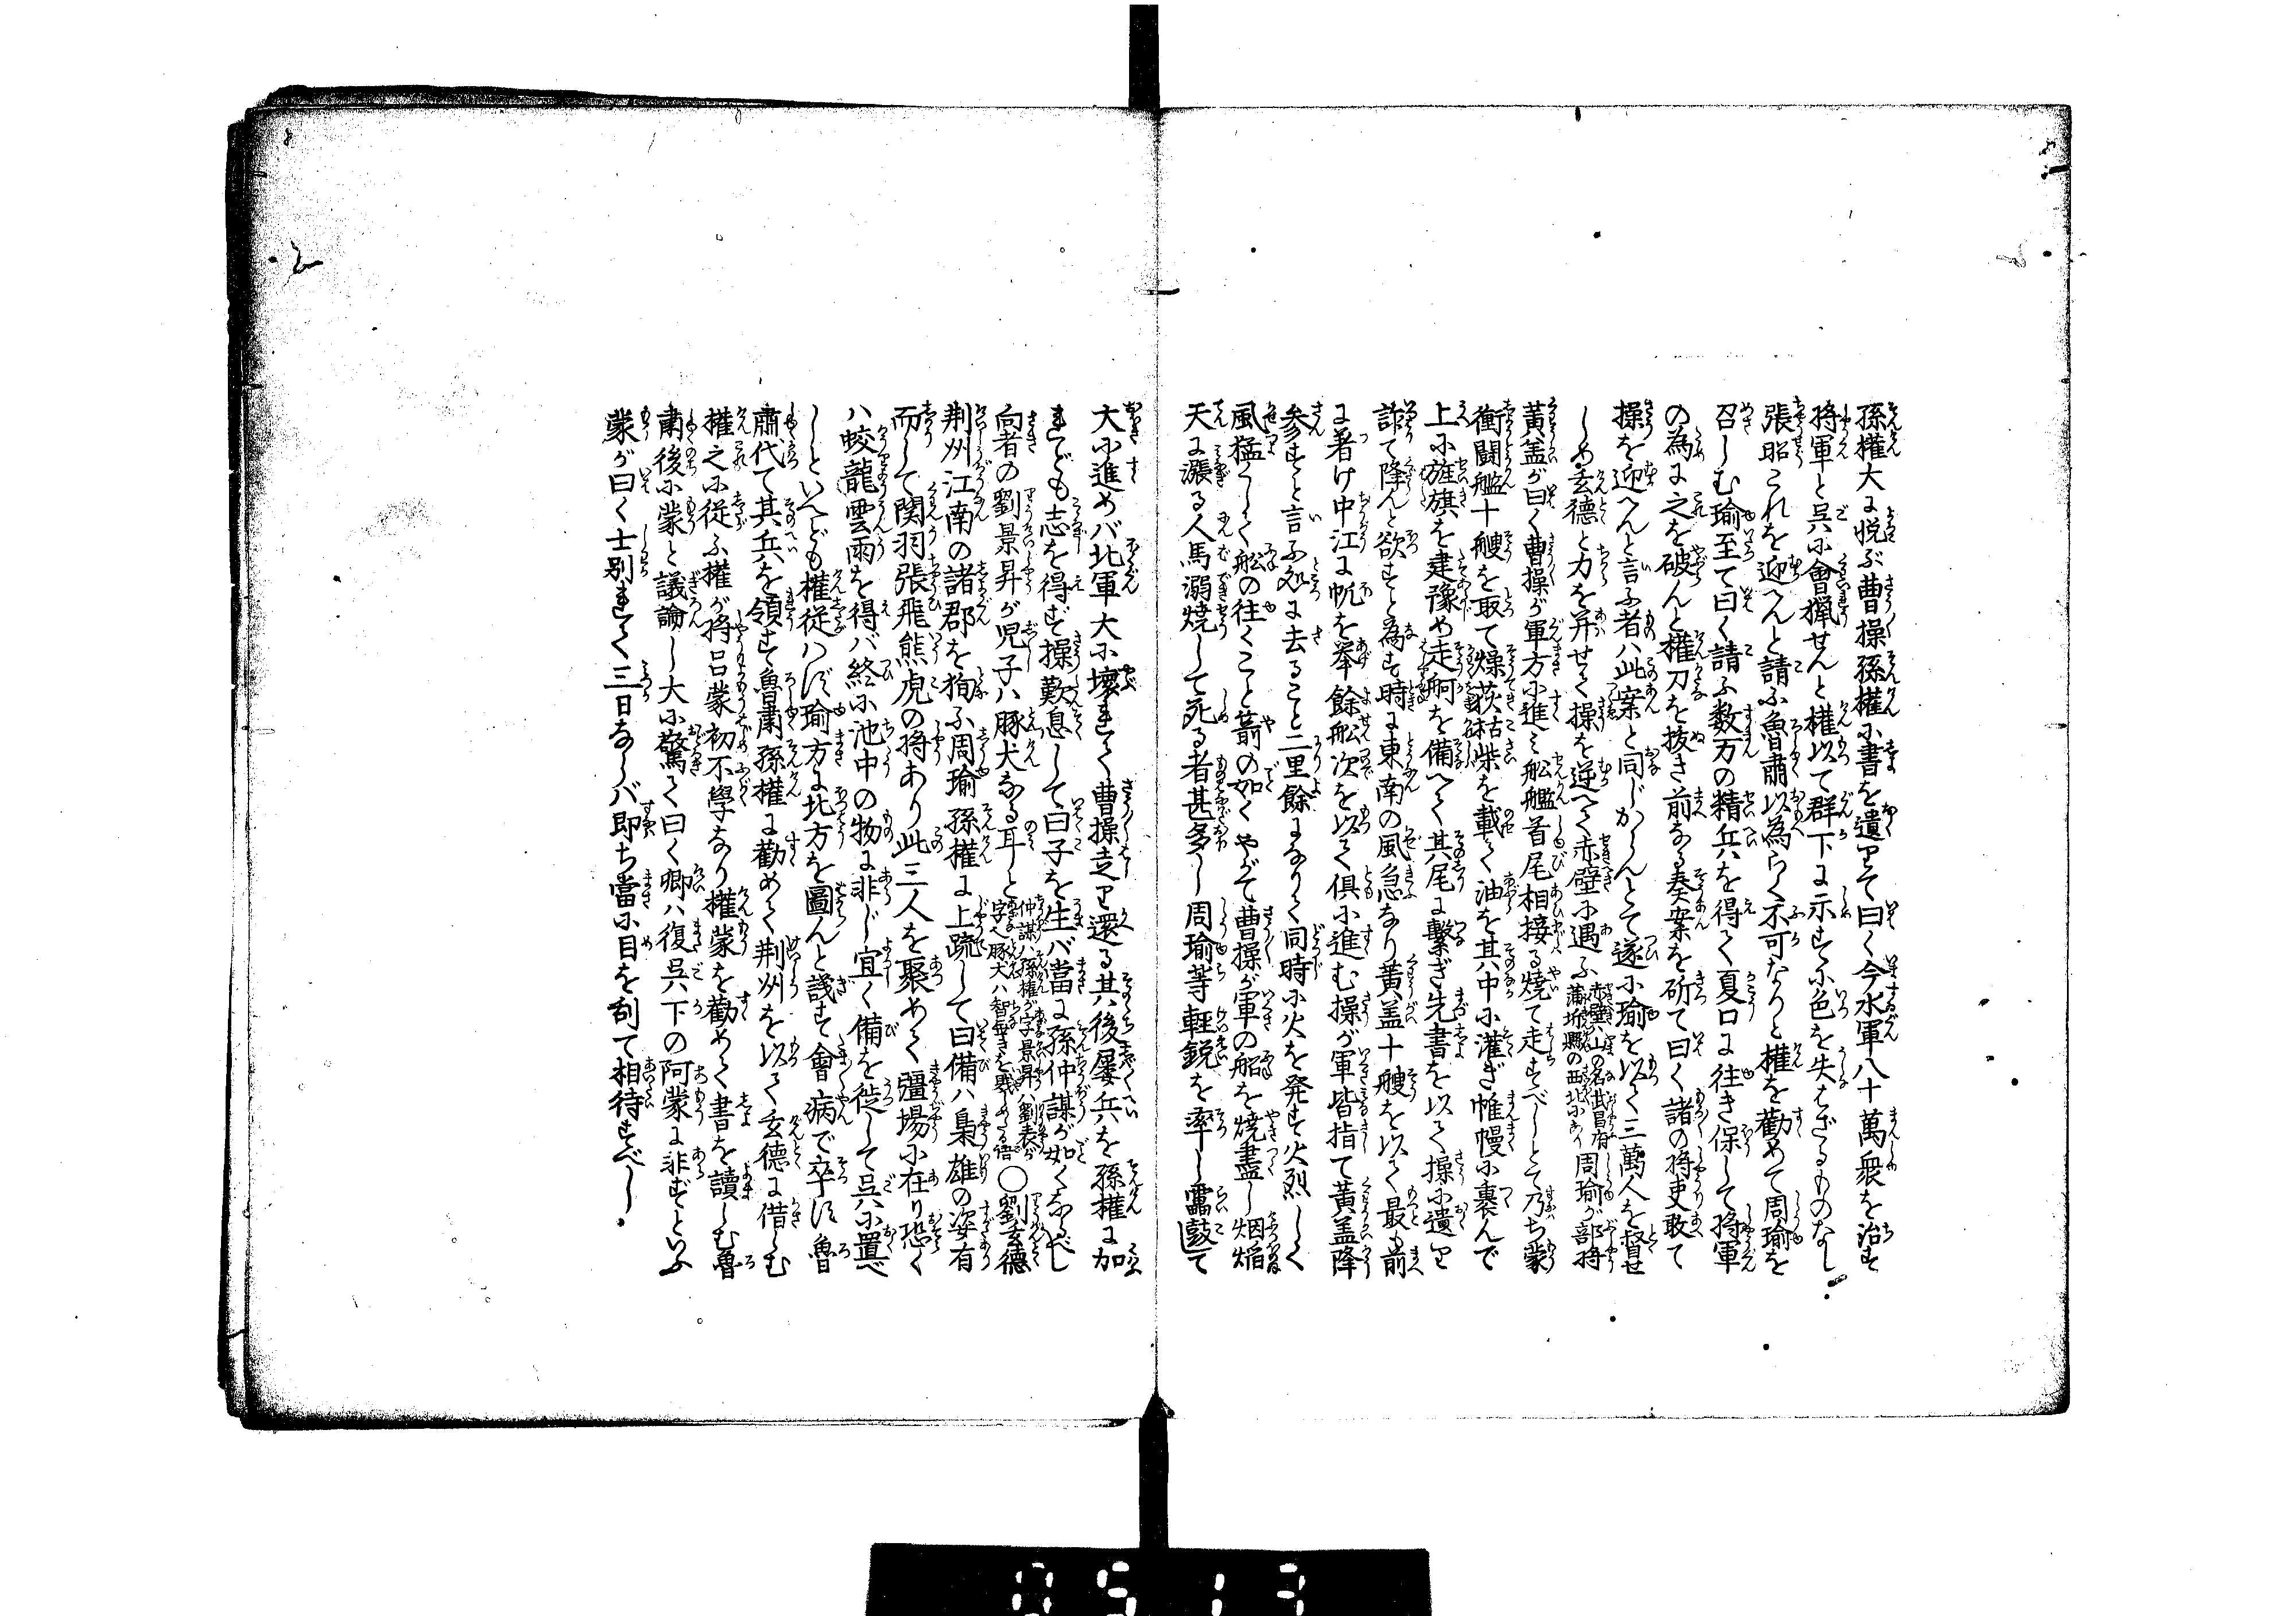 孫權大に悦ぶ曹操孫權に書を遺りて曰く今水軍八十萬衆を治す
将軍と呉に會猟せんと權以て群下に示すに色を失はざるものなし
張昭これを迎へんと請ふ魯肅以為らく不可なりと權を勸めて周瑜を
召しむ瑜至て曰く請ふ数万の精兵を得て夏口に往き保して将軍
の為に之を破んと權刀を抜き前なる奏案を斫て曰く諸の将吏敢て
操を迎へんと言ふ者ハ此案と同じからんとて遂に瑜を以て三萬人を督せ
しめ玄德と力を并せて操を逆へて赤壁に遇ふ赤壁ハ山の名武昌府蒲圻縣の西北にあり周瑜が部将
黄盖が曰く曹操が軍方に進ミ舩艦首尾相接る燒て走すべしとて乃ち蒙
衝鬪艦十艘を取て燥荻枯柴を載て油を其中に灌ぎ帷幔に裹んで
上に旌旗を建豫め走舸を備へて其尾に繋ぎ先書を以て操に遺り
詐て降んと欲すと為す時に東南の風急なり黄盖十艘を以て最も前
に著け中江に帆を举餘舩次を以て倶に進む操が軍皆指て黄盖降
参すと言ふ処に去ること二里餘になりて同時に火を発す火烈しく
風猛くして舩の往くこと箭の如くやがて曹操が軍の船を燒盡し烟焔
天に漲る人馬溺燒して死る者甚多し周瑜等軽鋭を率し靁鼓て
大に進めバ北軍大に壞れて曹操走り還る其後屡兵を孫權に加
れども志を得ず操歎息して曰子を生バ當に孫仲謀が如くなるべし
向者の劉景昇が児子ハ豚犬なる耳と仲謀ハ孫権が字景昇ハ劉表が字へ豚犬ハ智無きを賤しめたる語〇劉玄德
荆州江南の諸郡を狥ふ周瑜孫權に上䟽して曰備ハ梟雄の姿有
而して関羽張飛熊虎の将あり此三人を聚めて疆場に在り恐く
ハ蛟龍雲雨を得バ終に池中の物に非じ宜く備を徙して呉に置べ
しといへども權従ハず瑜方に北方を圖んと議す會病で卒す魯
肅代て其兵を領す魯肅孫權に勸めて荆州を以て玄德に借しむ
權之に従ふ權が将呂蒙初不學なり權蒙を勸めて書を讀しむ魯
肅後に蒙と議論し大に驚て曰く卿ハ復呉下の阿蒙に非ずといふ
蒙が曰く士別れて三日ならバ即ち當に目を刮て相待すべし